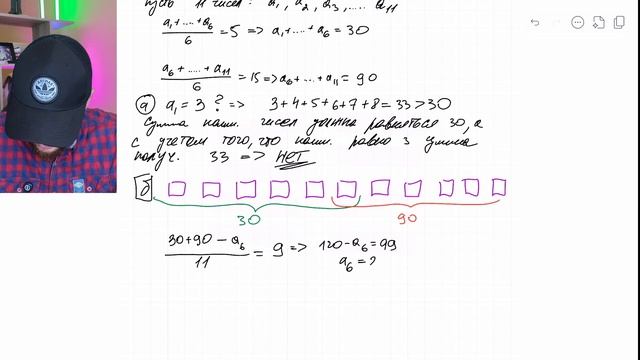 Пусть 11 чисел: a₁, a₂, a₃, .... a₁₁
(a₁+....+a₆)/6 = 5 => a₁+....+a₆ = 30
(a₆+....+a₁₁)/6 = 15 => a₆+...+a₁₁ = 90
а) a₁ = 3 ? => 3+4+5+6+7+8=33>30
Сумма наим. чисел должна равняться 30, а
с учетом того, что наим. равно 3 сумма
получ. 33 => НЕТ
б)
30 90
(30+90-a₆)/11 = 9 => 120-a₆=99
a₆ = ?